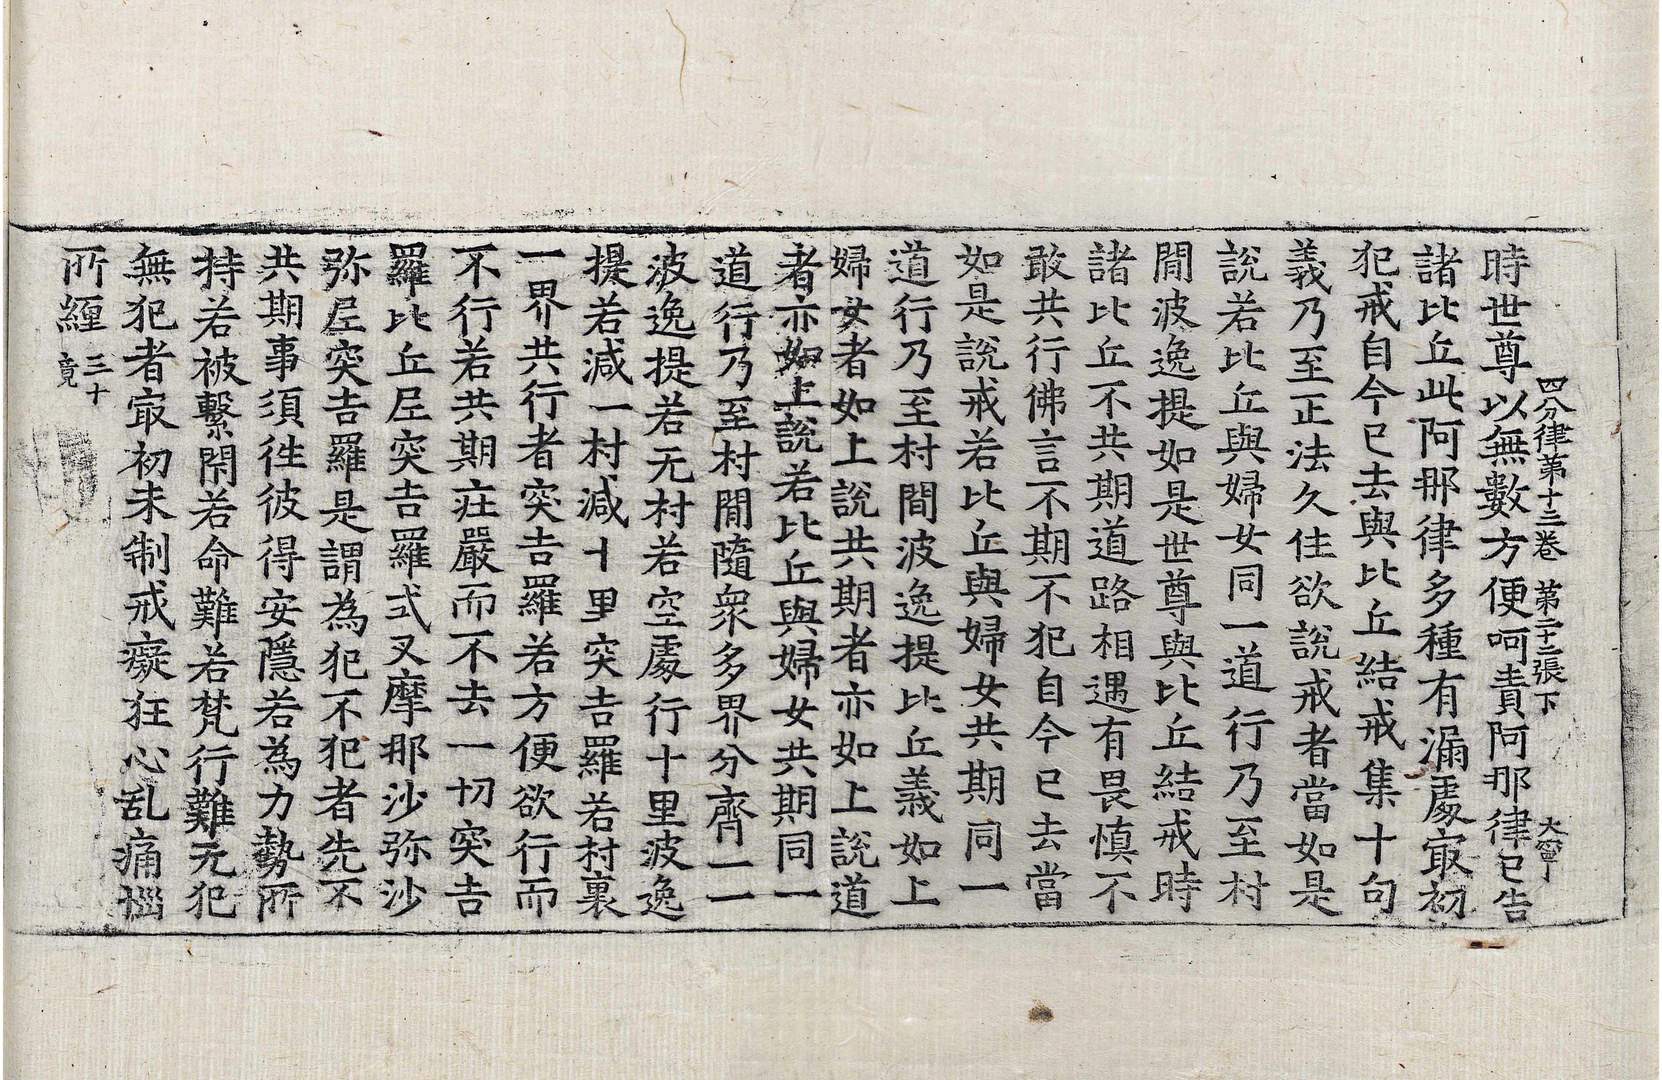 四分律第十三卷 第二十二張 下 大寧丁
時世尊以無數方便呵責阿那律已告
諸比丘此阿那律多種有漏處㝡初
犯戒自今已去與比丘結戒集十句
義乃至正法久住欲說戒者當如是
說若比丘與婦女同一道行乃至村
閒波逸提如是世尊與比丘結戒時
諸比丘不共期道路相遇有畏慎不
敢共行佛言不期不犯自今已去當
如是說戒若比丘與婦女共期同一
道行乃至村間波逸提比丘義如上
婦女者如上說共期者亦如上說道
者亦如上說若比丘與婦女共期同一
道行乃至村閒隨衆多界分齊一一
波逸提若无村若空處行十里波逸
提若減一村減十里突吉羅若村裏
一界共行者突吉羅若方便欲行而
不行若共期庄嚴而不去一切突吉
羅比丘尼突吉羅式叉摩那沙弥沙
弥尼突吉羅是謂為犯不犯者先不
共期事須徃彼得安隱若為力勢所
持若被繫閇若命難若梵行難无犯
無犯者㝡初未制戒癡狂心乱痛惱
所纏 三十竟